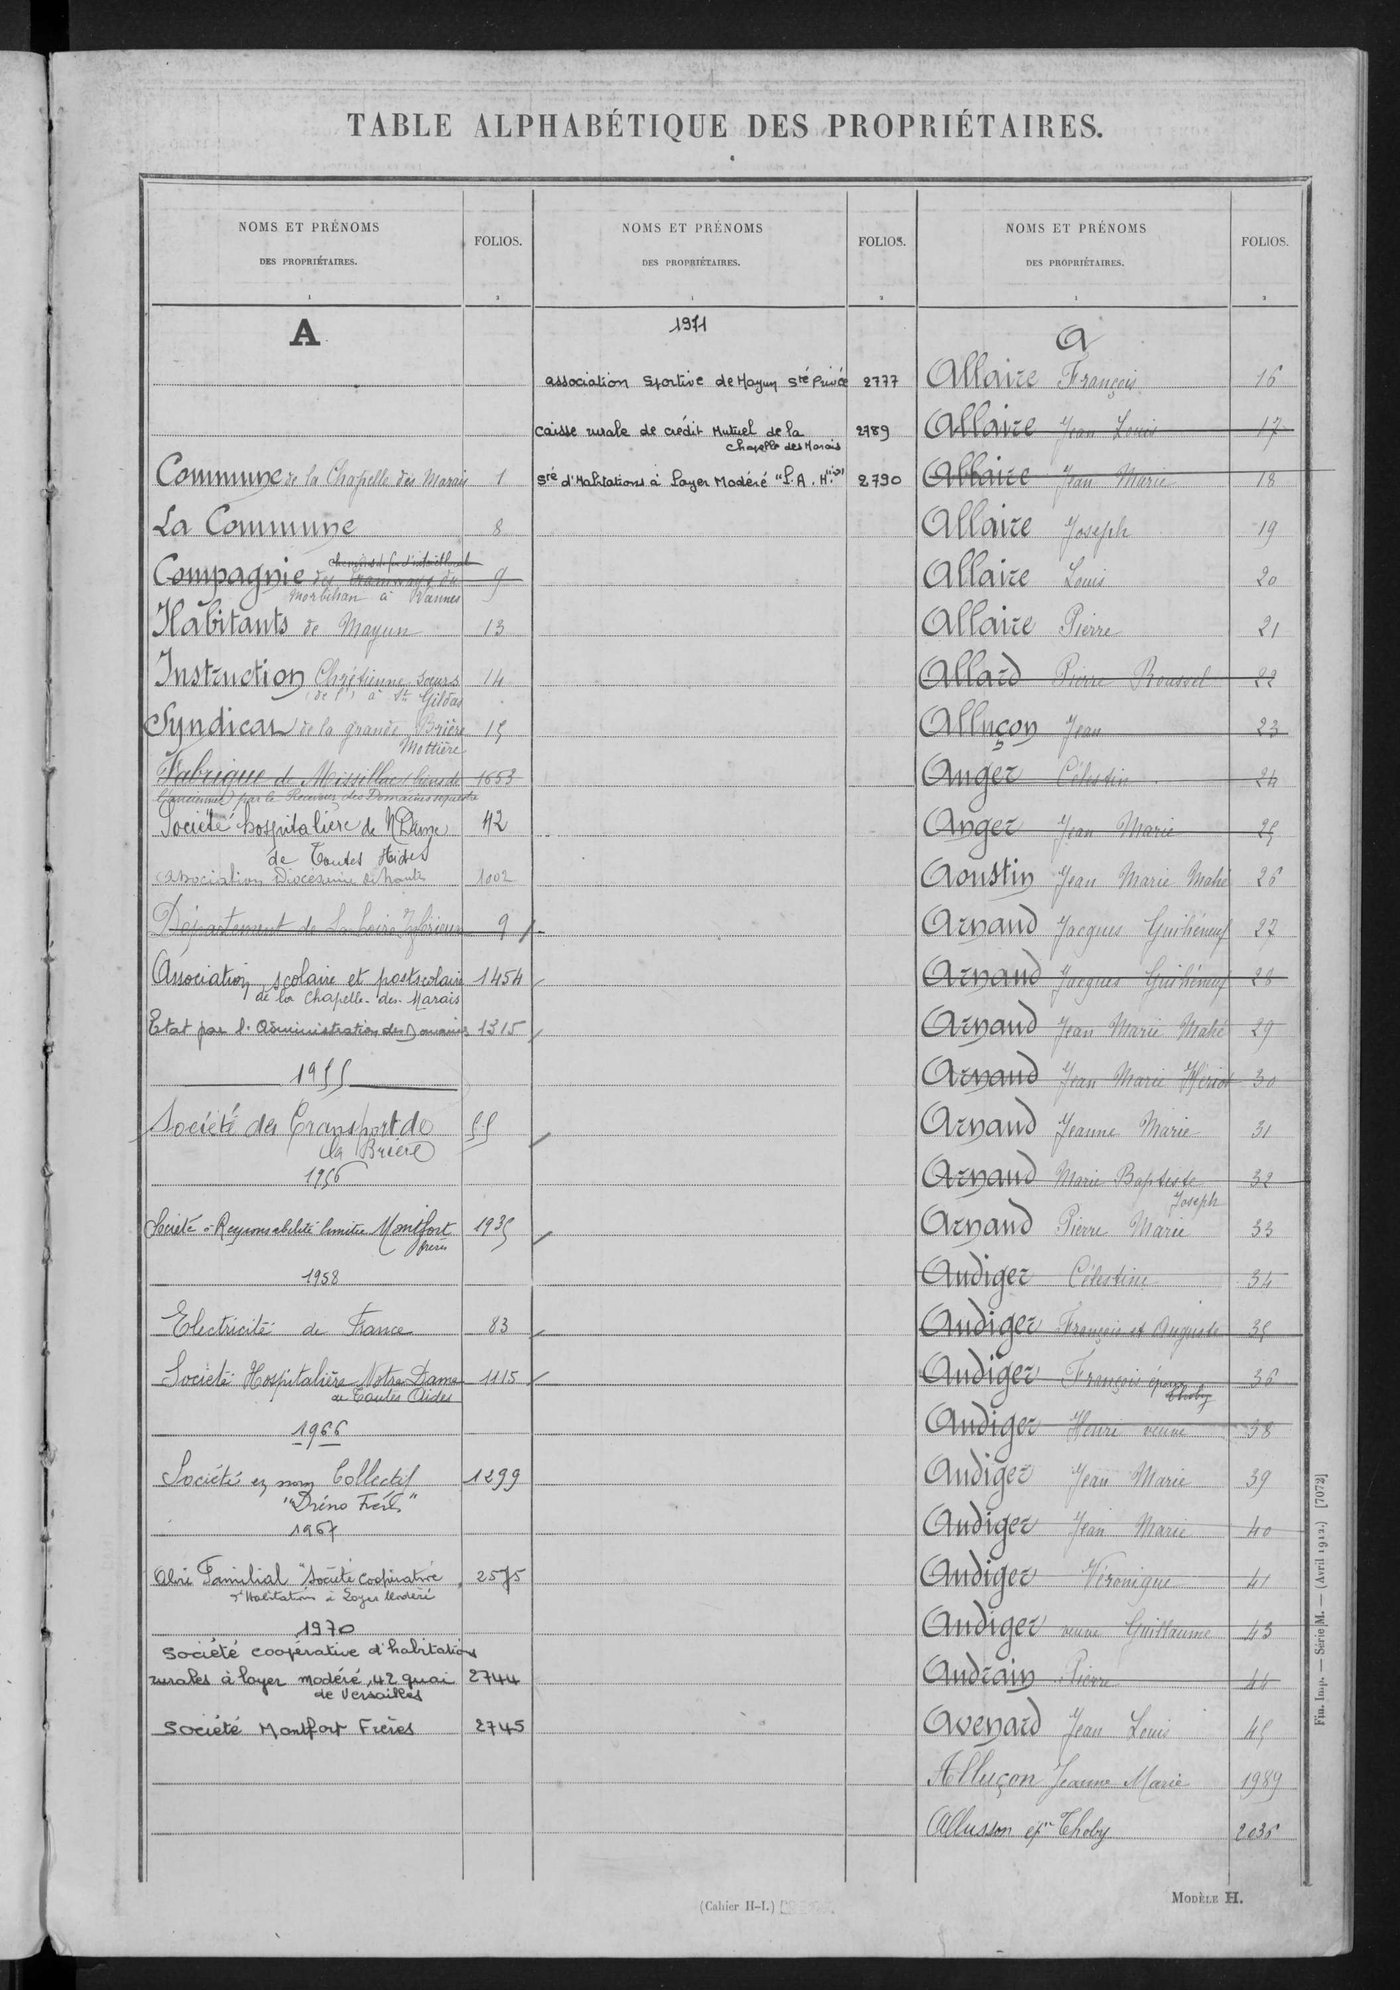 TABLE ALPHABÉTIQUE DES PROPRIÉTAIRES.
NOMS ET PRÉNOMS
DES PROPRIÉTAIRES.
FOLIOS.
1
2
A
Commune de la Chapelle des Marais 1
La Commune 8
chemins de fer d'intérêt local
Compagnie des tramways du 9
Morbihan à Vannes
Habitants de Mayun 13
Instruction Chrétienne, Sœurs 14
(de l') à St Gildas
Syndicat de la grande Brière 15
Mottière
Fabrique de Missillac (biens de 1653
l'ancienne) par le Receveur des Domaines
Société hospitalière de N. Dame 42
de Toutes Aides
Association Diocésaine de Nantes 1002
Département de La Loire Inférieure 9
Association scolaire et postscolaire 1454
de la Chapelle-des-Marais
Etat par l'Administration des Douanes 1315
1955
Société des Transport de 55
la Brière
1956
Société à Responsabilité limitée Montfort 1935
frères
1958
Electricité de France 83
Société Hospitalière Notre Dame 1115
de Toutes Aides
1966
Société en nom Collectif 1299
"Dréno Frères"
1967
Abri Familial "Société Coopérative 2575
d'Habitations à Loyer Modéré
1970
Société coopérative d'habitations
rurales à loyer modéré, 42 quai 2744
de Versailles
Société Montfort Frères 2745
NOMS ET PRÉNOMS
DES PROPRIÉTAIRES.
FOLIOS.
1
2
1971
association Sportive de Mayun Sté Privée 2777
Caisse rurale de crédit Mutuel de la 2789
Chapelle des Marais
Sté d'Habitations à Loyer Modéré 2790
NOMS ET PRÉNOMS
DES PROPRIÉTAIRES.
FOLIOS.
1
2
A
Allaire François 16
Allaire Jean Louis 17
Allaire Jean Marie 18
Allaire Joseph 19
Allaire Louis 20
Allaire Pierre 21
Allard Pierre Roussel 22
Alluçon Jean 23
Anger Célestin 24
Anger Jean Marie 25
Aoustin Jean Marie Mahé 26
Arnaud Jacques Guihéneuf 27
Arnaud Jacques Guihéneuf 28
Arnaud Jean Marie Mahé 29
Arnaud Jean Marie Hériot 30
Arnaud Jeanne Marie 31
Arnaud Marie Baptiste 32
Joseph
Arnaud Pierre Marie 33
Audiger Célestine 34
Audiger François et Auguste 35
Audiger François époux 36
Thoby
Audiger Henri veuve 38
Audiger Jean Marie 39
Audiger Jean Marie 40
Audiger Véronique 41
Audiger veuve Guillaume 43
Audrain Pierre 44
Avenard Jean Louis 45
Alluçon Jeanne Marie 1989
Allusson ép. Thoby 2036
(Cahier H-I.)
MODÈLE H.
Fin. Imp. — Série M. — (Avril 1912.) [7072]